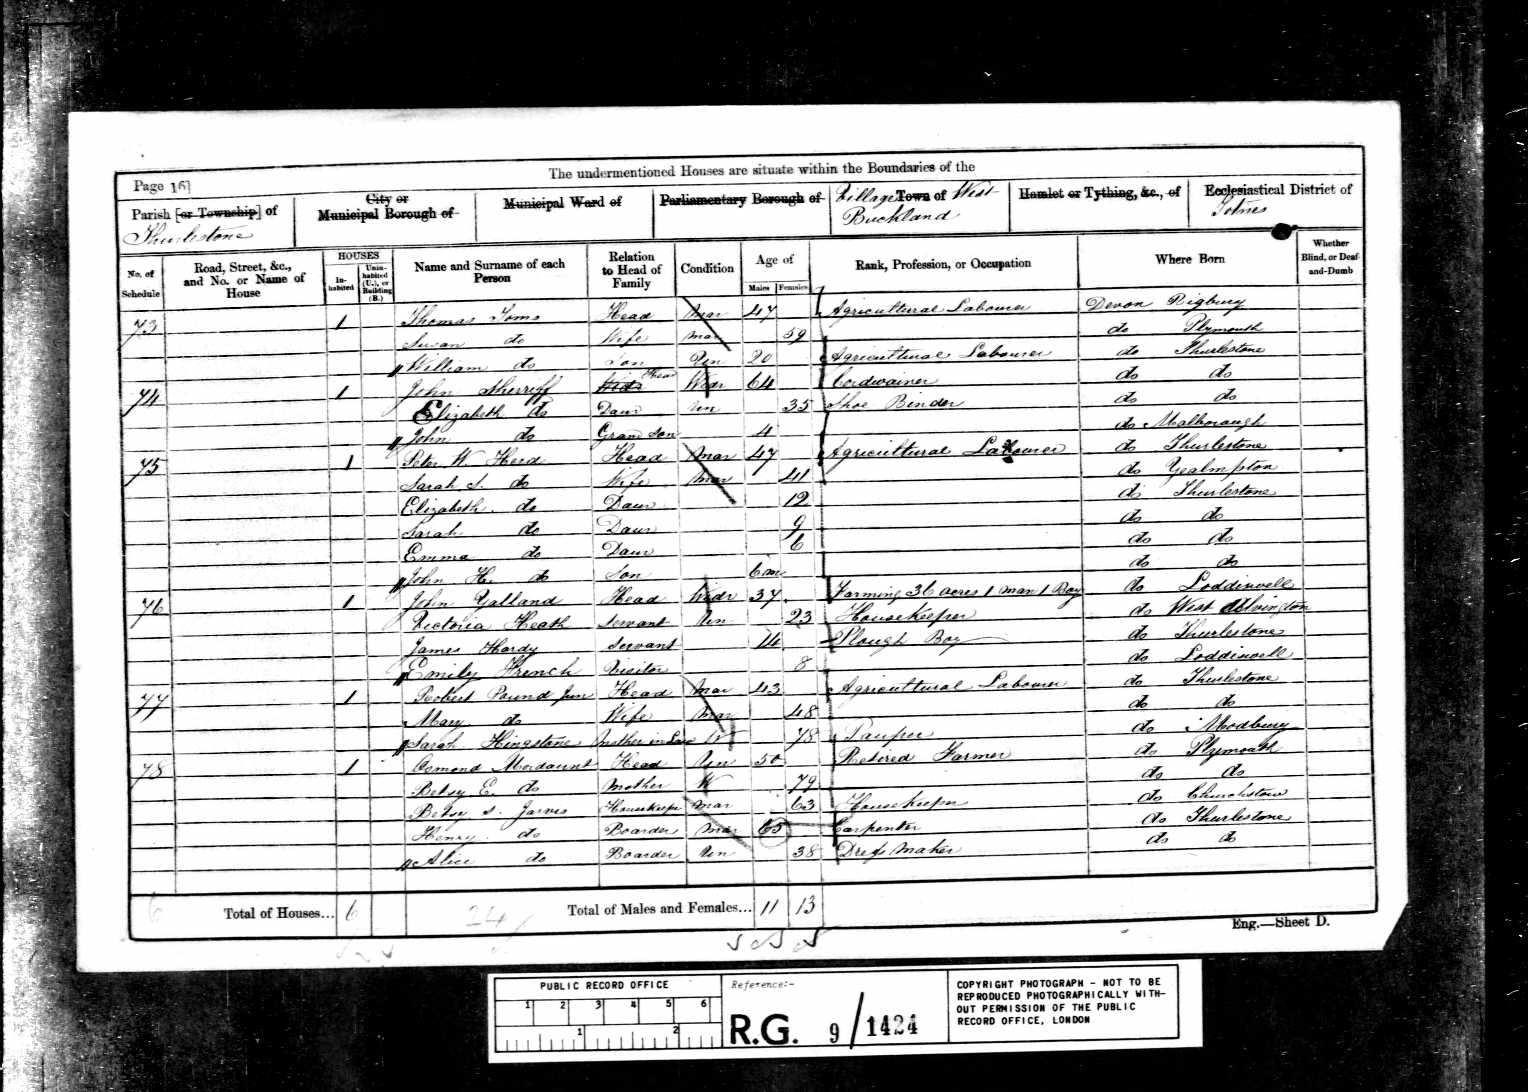 The undermentioned Houses are situate within the Boundaries of the
Page 16]
Parish [or Township] of Thurlestone
City or Municipal Borough of
Municipal Ward of
Parliamentary Borough of
Village Town of West Buckland
Hamlet or Tything, &c., of
Ecclesiastical District of Totnes
No. of Schedule
Road, Street, &c., and No. or Name of House
HOUSES
In-habited
Unin-habited (U.), or Building (B.)
Name and Surname of each Person
Relation to Head of Family
Condition
Age of
Males
Females
Rank, Profession, or Occupation
Where Born
Whether Blind, or Deaf-and-Dumb
73 1 Thomas Toms Head Mar 47 Agricultural Labourer Devon Bigbury
Susan do Wife Mar 59 do Plymouth
William do Son Un 20 Agricultural Labourer do Thurlestone
74 1 John Sherriff Head Widr 64 Cordwainer do do
Elizabeth do Daur Un 35 Shoe Binder do do
John do Grand Son 4 do Malborough
75 1 Peter W. Herd Head Mar 47 Agricultural Labourer do Thurlestone
Sarah S. do Wife Mar 41 do Yealmpton
Elizabeth do Daur 12 do Thurlestone
Sarah do Daur 9 do do
Emma do Daur 6 do do
John H. do Son 6m do do
76 1 John Yalland Head Widr 37 Farming 36 acres 1 man 1 Boy do Loddiswell
Victoria Heath Servant Un 23 Housekeeper do West Alvington
James Hardy Servant 14 Plough Boy do Thurlestone
Emily French Visitor 8 do Loddiswell
77 1 Robert Pound Jun Head Mar 43 Agricultural Labourer do Thurlestone
Mary do Wife Mar 48 do do
Sarah Hingstone Mother in Law W 78 Pauper do Modbury
78 1 Osmond Mordaunt Head Un 50 Retired Farmer do Plymouth
Betsy E. do Mother W 79 do do
Betsy S. Jarves Housekeeper Mar 63 Housekeeper do Churchstow
Henry do Boarder Mar 65 Carpenter do Thurlestone
Alice do Boarder Un 38 Dress Maker do do
6 Total of Houses... 6 24 Total of Males and Females... 11 13
Eng.—Sheet D.
PUBLIC RECORD OFFICE
1 2 3 4 5 6
1 2
Reference:-
R.G. 9/1424
COPYRIGHT PHOTOGRAPH - NOT TO BE
REPRODUCED PHOTOGRAPHICALLY WITH-
OUT PERMISSION OF THE PUBLIC
RECORD OFFICE, LONDON